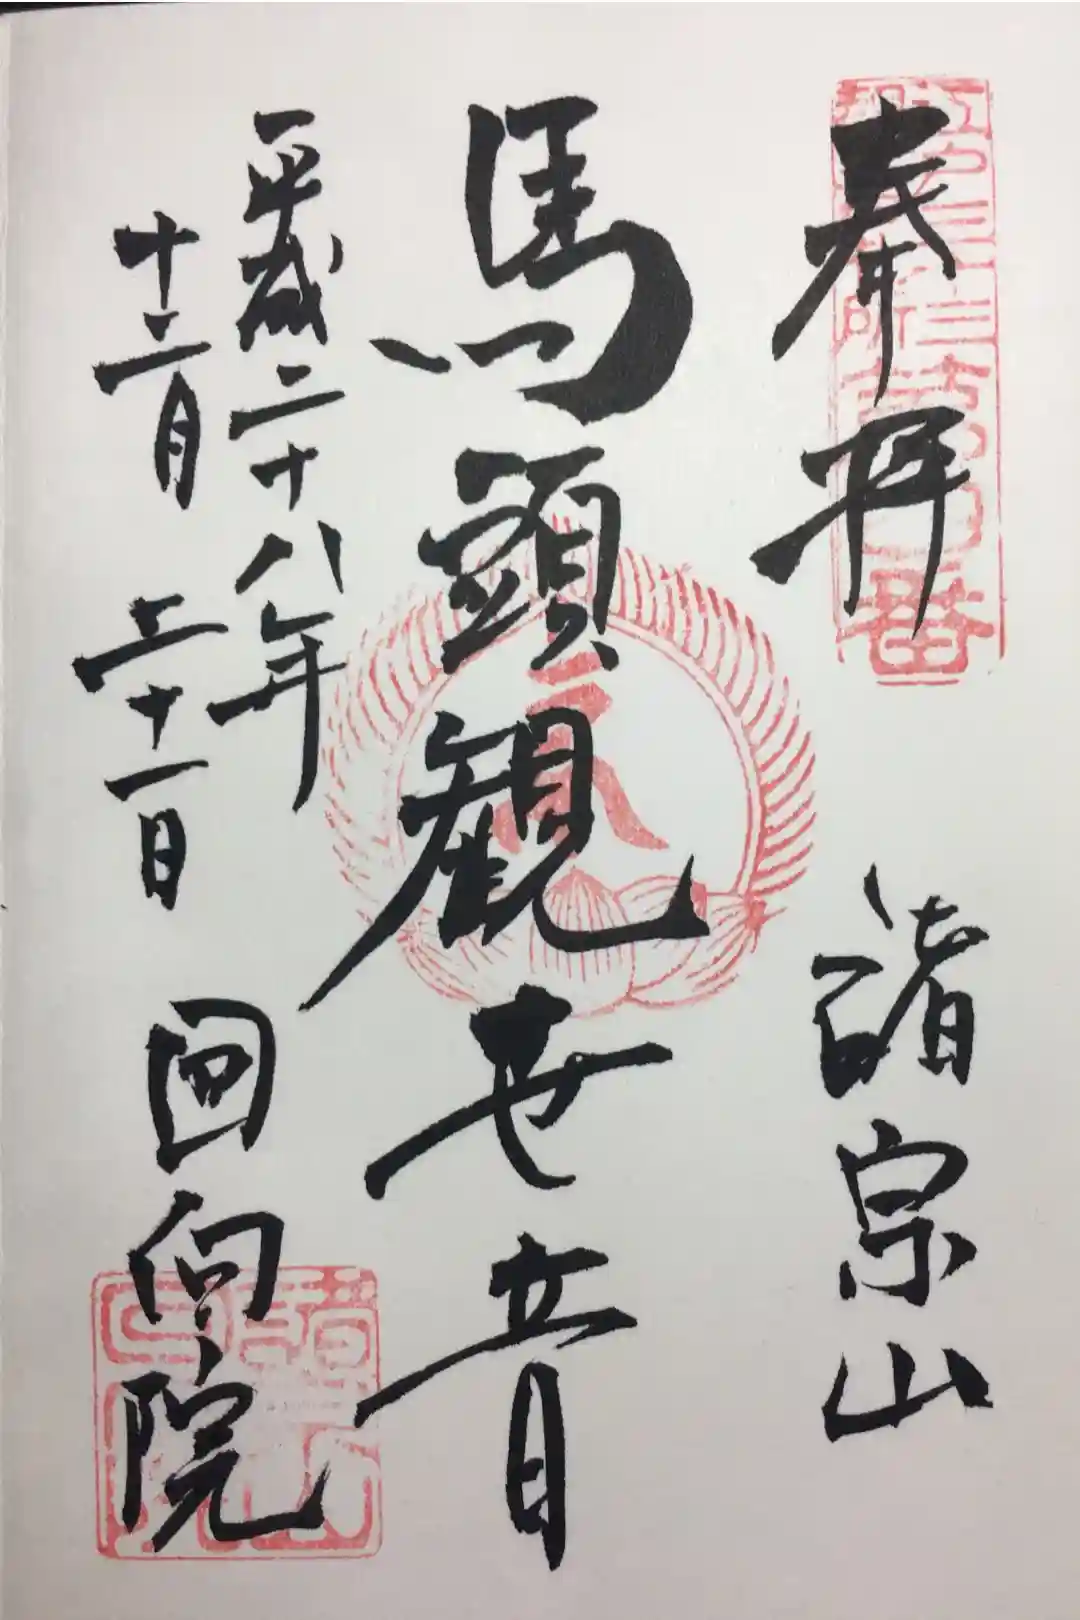 奉拝
諸宗山
馬頭観世音
平成二十八年
十二月三十一日
回向院